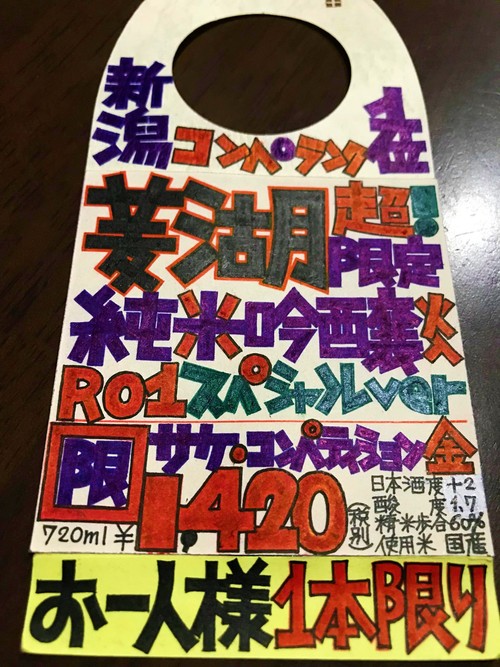 新潟コンペランク
菱湖 超!限定
純米吟醸火
R01スペシャルver
限 サケ・コンペティション金
720ml ¥1,420(税別)
日本酒度+2
酸 度1.7
精米歩合60%
使用米 国産
お一人様1本限り